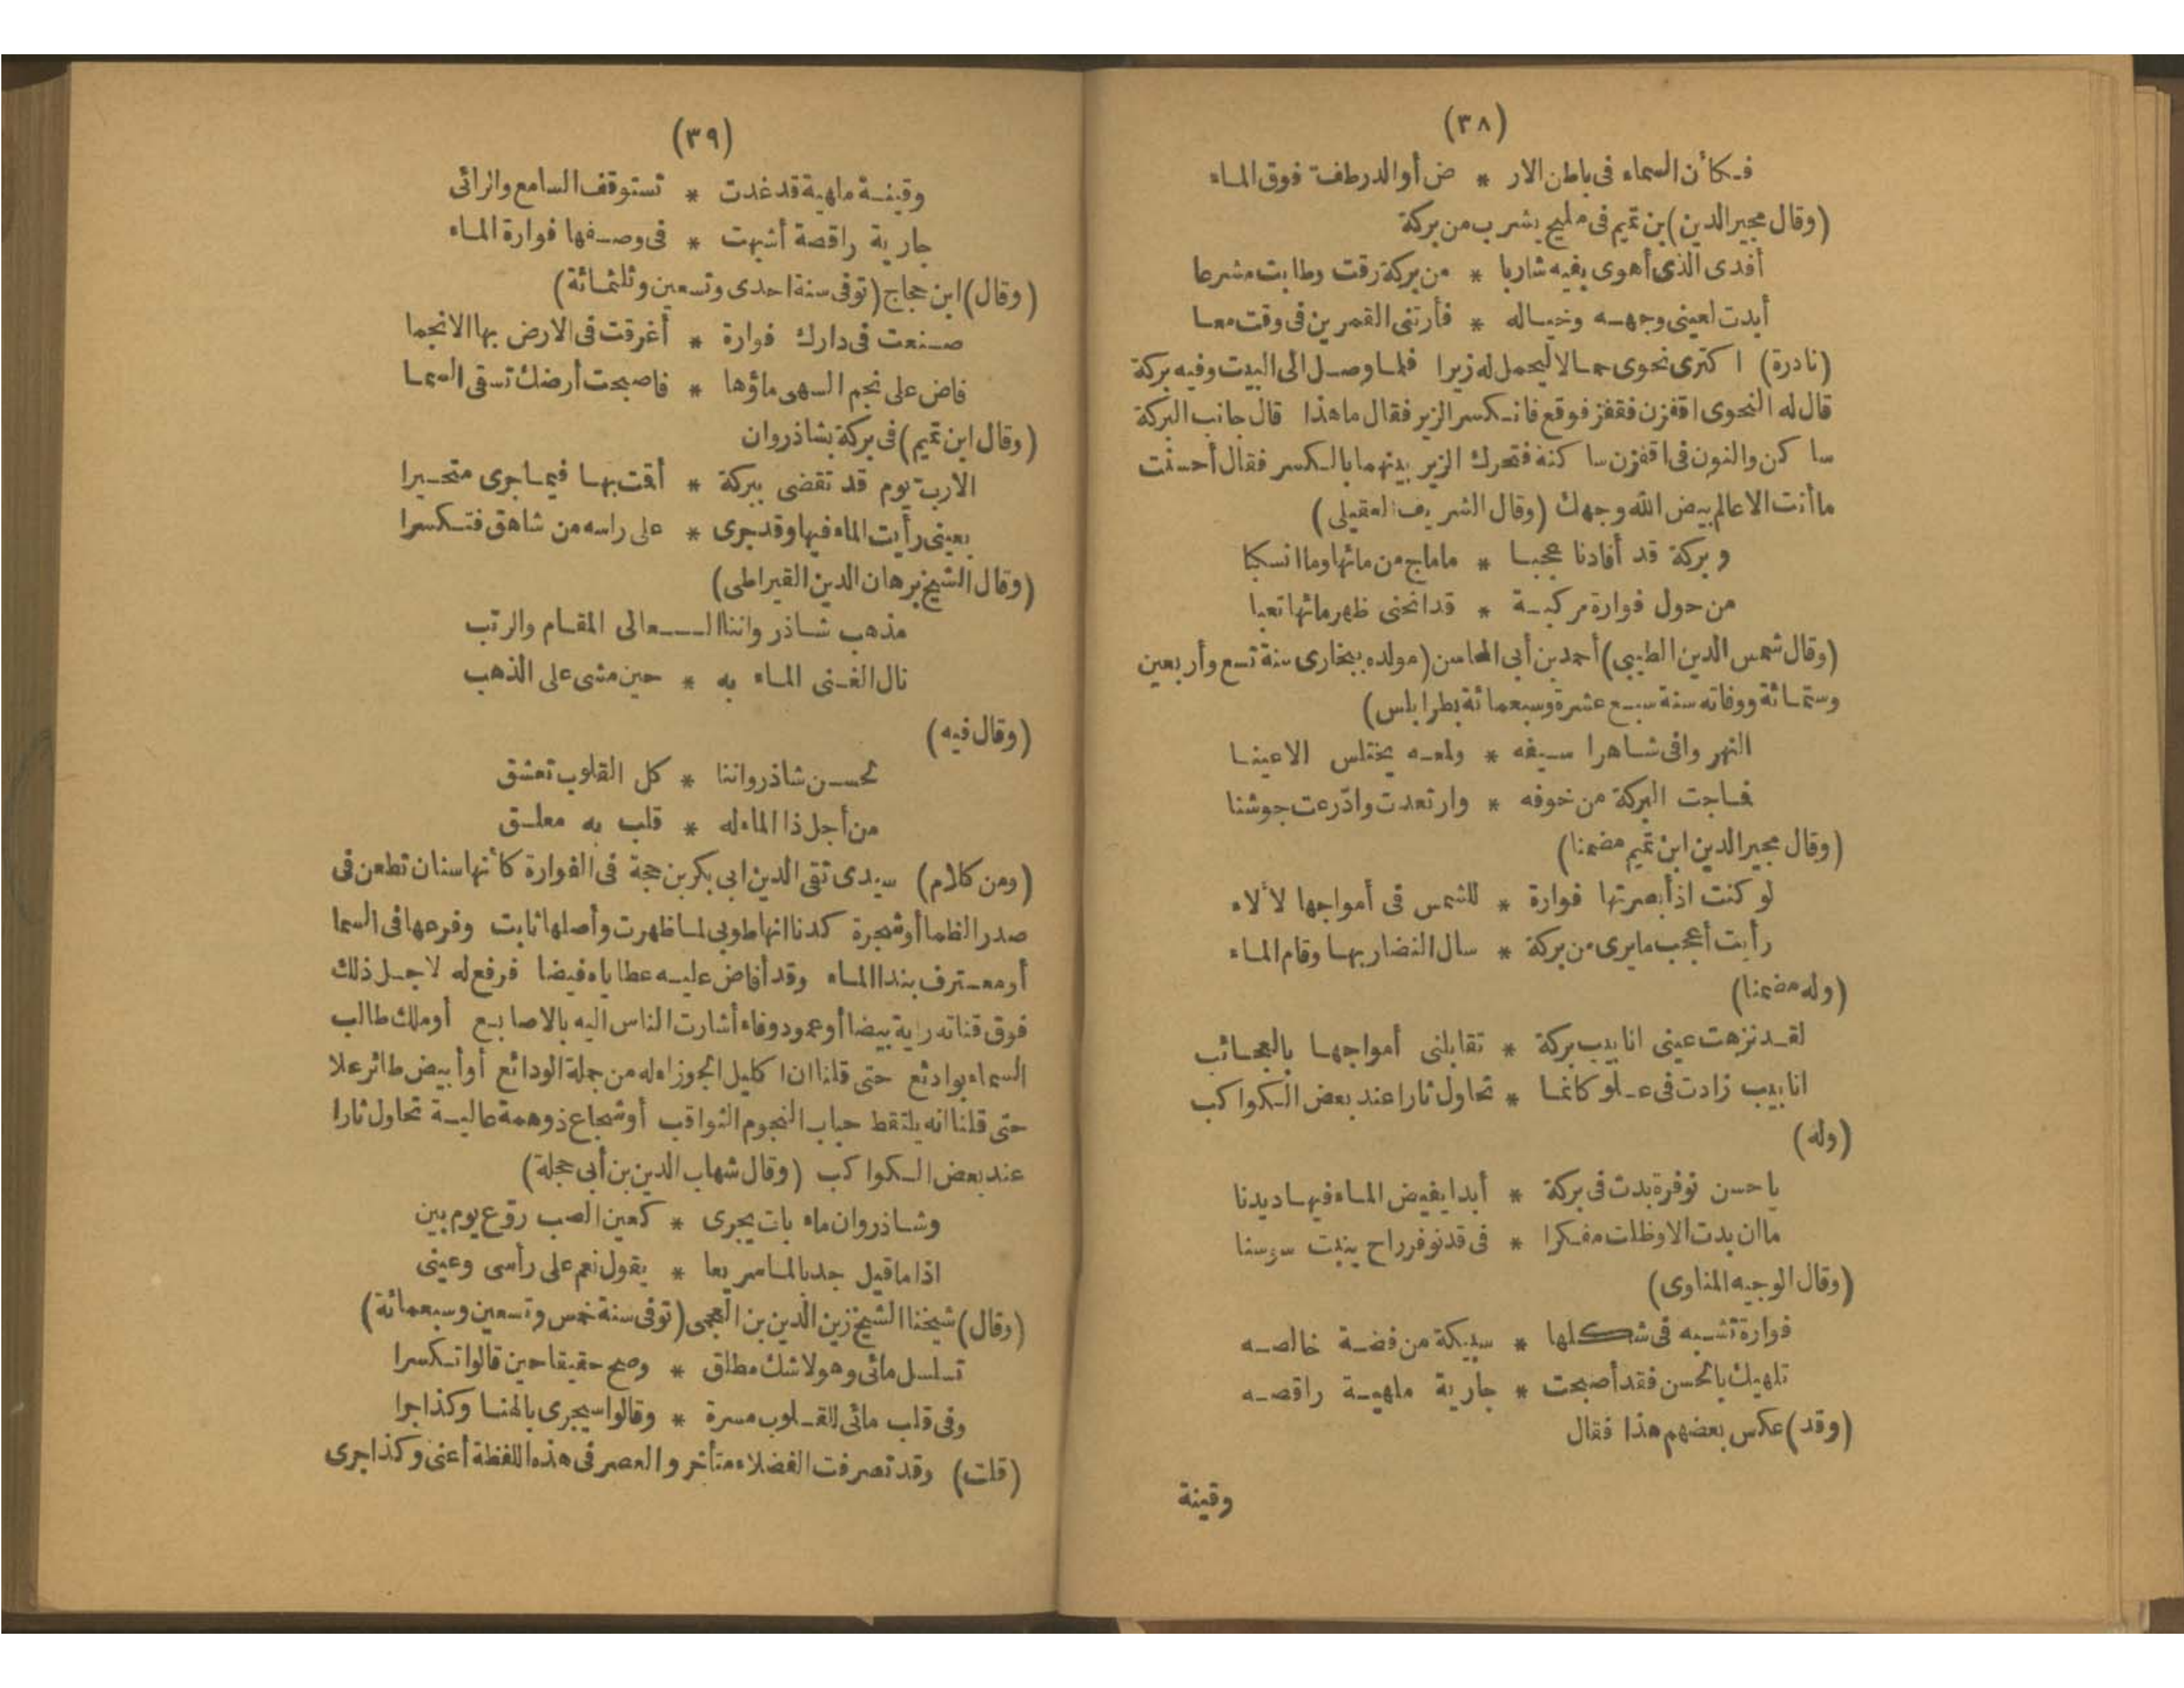 (٣٨)
فكأن السماء في باطن الار * ض أو الدر طف فوق الماء
(وقال مجير الدين) بن تميم في مليح يشرب من بركة
أفدى الذي أهوى بفيه شاربا * من بركة رقت وطابت مشرعا
أبدت لعيني وجهه وخياله * فأرتني القمرين في وقت معا
(نادرة) اكترى نحوى حمالا ليحمل له زيرا فلما وصل الى البيت وفيه بركة
قال له النحوى اقفزن فقفز فوقع فانكسر الزير فقال ما هذا قال جانب البركة
ساكن والنون في اقفزن ساكنة فتحرك الزير بينهما بالكسر فقال أحسنت
ما أنت الا عالم بيض الله وجهك (وقال الشريف العقيلي)
وبركة قد أفادنا عجبا * ماماج من مائها وما انسكبا
من حول فوارة مركبة * قد انحنى ظهر مائها تعبا
(وقال شمس الدين الطيبي) أحمد بن أبي المحاسن (مولده ببخارى سنة تسع وأربعين
وستمائة ووفاته سنة سبع عشرة وسبعمائة بطرابلس)
النهر وافى شاهرا سيفه * ولمعه يختلس الاعينا
فماجت البركة من خوفه * وارتعدت وادّرعت جوشنا
(وقال مجير الدين ابن تميم مضمنا)
لو كنت اذ أبصرتها فوارة * للشمس في أمواجها لألاء
رأيت أعجب ما يرى من بركة * سال النضار بها وقام الماء
(وله مضمنا)
لقد نزهت عيني انابيب بركة * تقابلني أمواجها بالعجائب
انابيب زادت في علو كانما * تحاول ثارا عند بعض الكواكب
(وله)
يا حسن نوفرة بدت في بركة * أبدا يفيض الماء فيها ديدنا
ما ان بدت الا وظلت مفكرا * في قد نوفر راح ينبت سوسنا
(وقال الوجيه المناوى)
فوارة تشبه في شكلها * سبيكة من فضة خالصه
تلهيك بالحسن فقد أصبحت * جارية ملهية راقصه
(وقد) عكس بعضهم هذا فقال
وقينة
(٣٩)
وقينة ملهية قد غدت * تستوقف السامع والرائى
جارية راقصة أشبهت * في وصفها فوارة الماء
(وقال) ابن حجاج (توفى سنة احدى وتسعين وثلثمائة)
صنعت في دارك فوارة * أغرقت في الارض بها الانجما
فاض على نجم السهى ماؤها * فاصبحت أرضك تسقى السما
(وقال ابن تميم) في بركة بشاذروان
الا رب يوم قد تقضى ببركة * أقت بها فيما جرى متحيرا
بعيني رأيت الماء فيها وقد جرى * على راسه من شاهق فتكسرا
(وقال الشيخ برهان الدين القيراطى)
مذهب شاذرواننا الـعالى المقام والرتب
نال الغنى الماء به * حين مشى على الذهب
(وقال فيه)
لحسن شاذرواننا * كل القلوب تعشق
من أجل ذا الماء له * قلب به معلق
(ومن كلام) سيدى تقى الدين ابى بكر بن حجة في الفوارة كأنها سنان تطعن في
صدر الظما أو شجرة كدنا انها طوبى لما ظهرت وأصلها ثابت وفرعها في السما
أو معترف بندا الماء وقد أفاض عليه عطاياه فيضا فرفع له لاجل ذلك
فوق قناته راية بيضا أو عمود وفاء أشارت الناس اليه بالاصابع أو ملك طالب
السماء بوادئع حتى قلنا ان اكليل الجوزاء له من جملة الودائع أو أبيض طائر علا
حتى قلنا انه يلتقط حباب النجوم الثواقب أو شجاع ذو همة عالية تحاول ثارا
عند بعض الكواكب (وقال شهاب الدين بن أبى حجلة)
وشاذروان ماء بات يجرى * كعين الصب روّع يوم بين
اذا ما قيل جد بالما سريعا * يقول نعم على رأسى وعينى
(وقال) شيخنا الشيخ زين الدين بن العجمى (توفى سنة خمس وتسعين وسبعمائة)
تسلسل مائى وهو لا شك مطلق * وصح حقيقا حين قالوا تكسرا
وفي قلب مائى للقلوب مسرة * وقالوا سيجرى بالهنا وكذا جرا
(قلت) وقد تصرفت الفضلاء متأخرو العصر في هذه اللفظة أعنى وكذا جرى